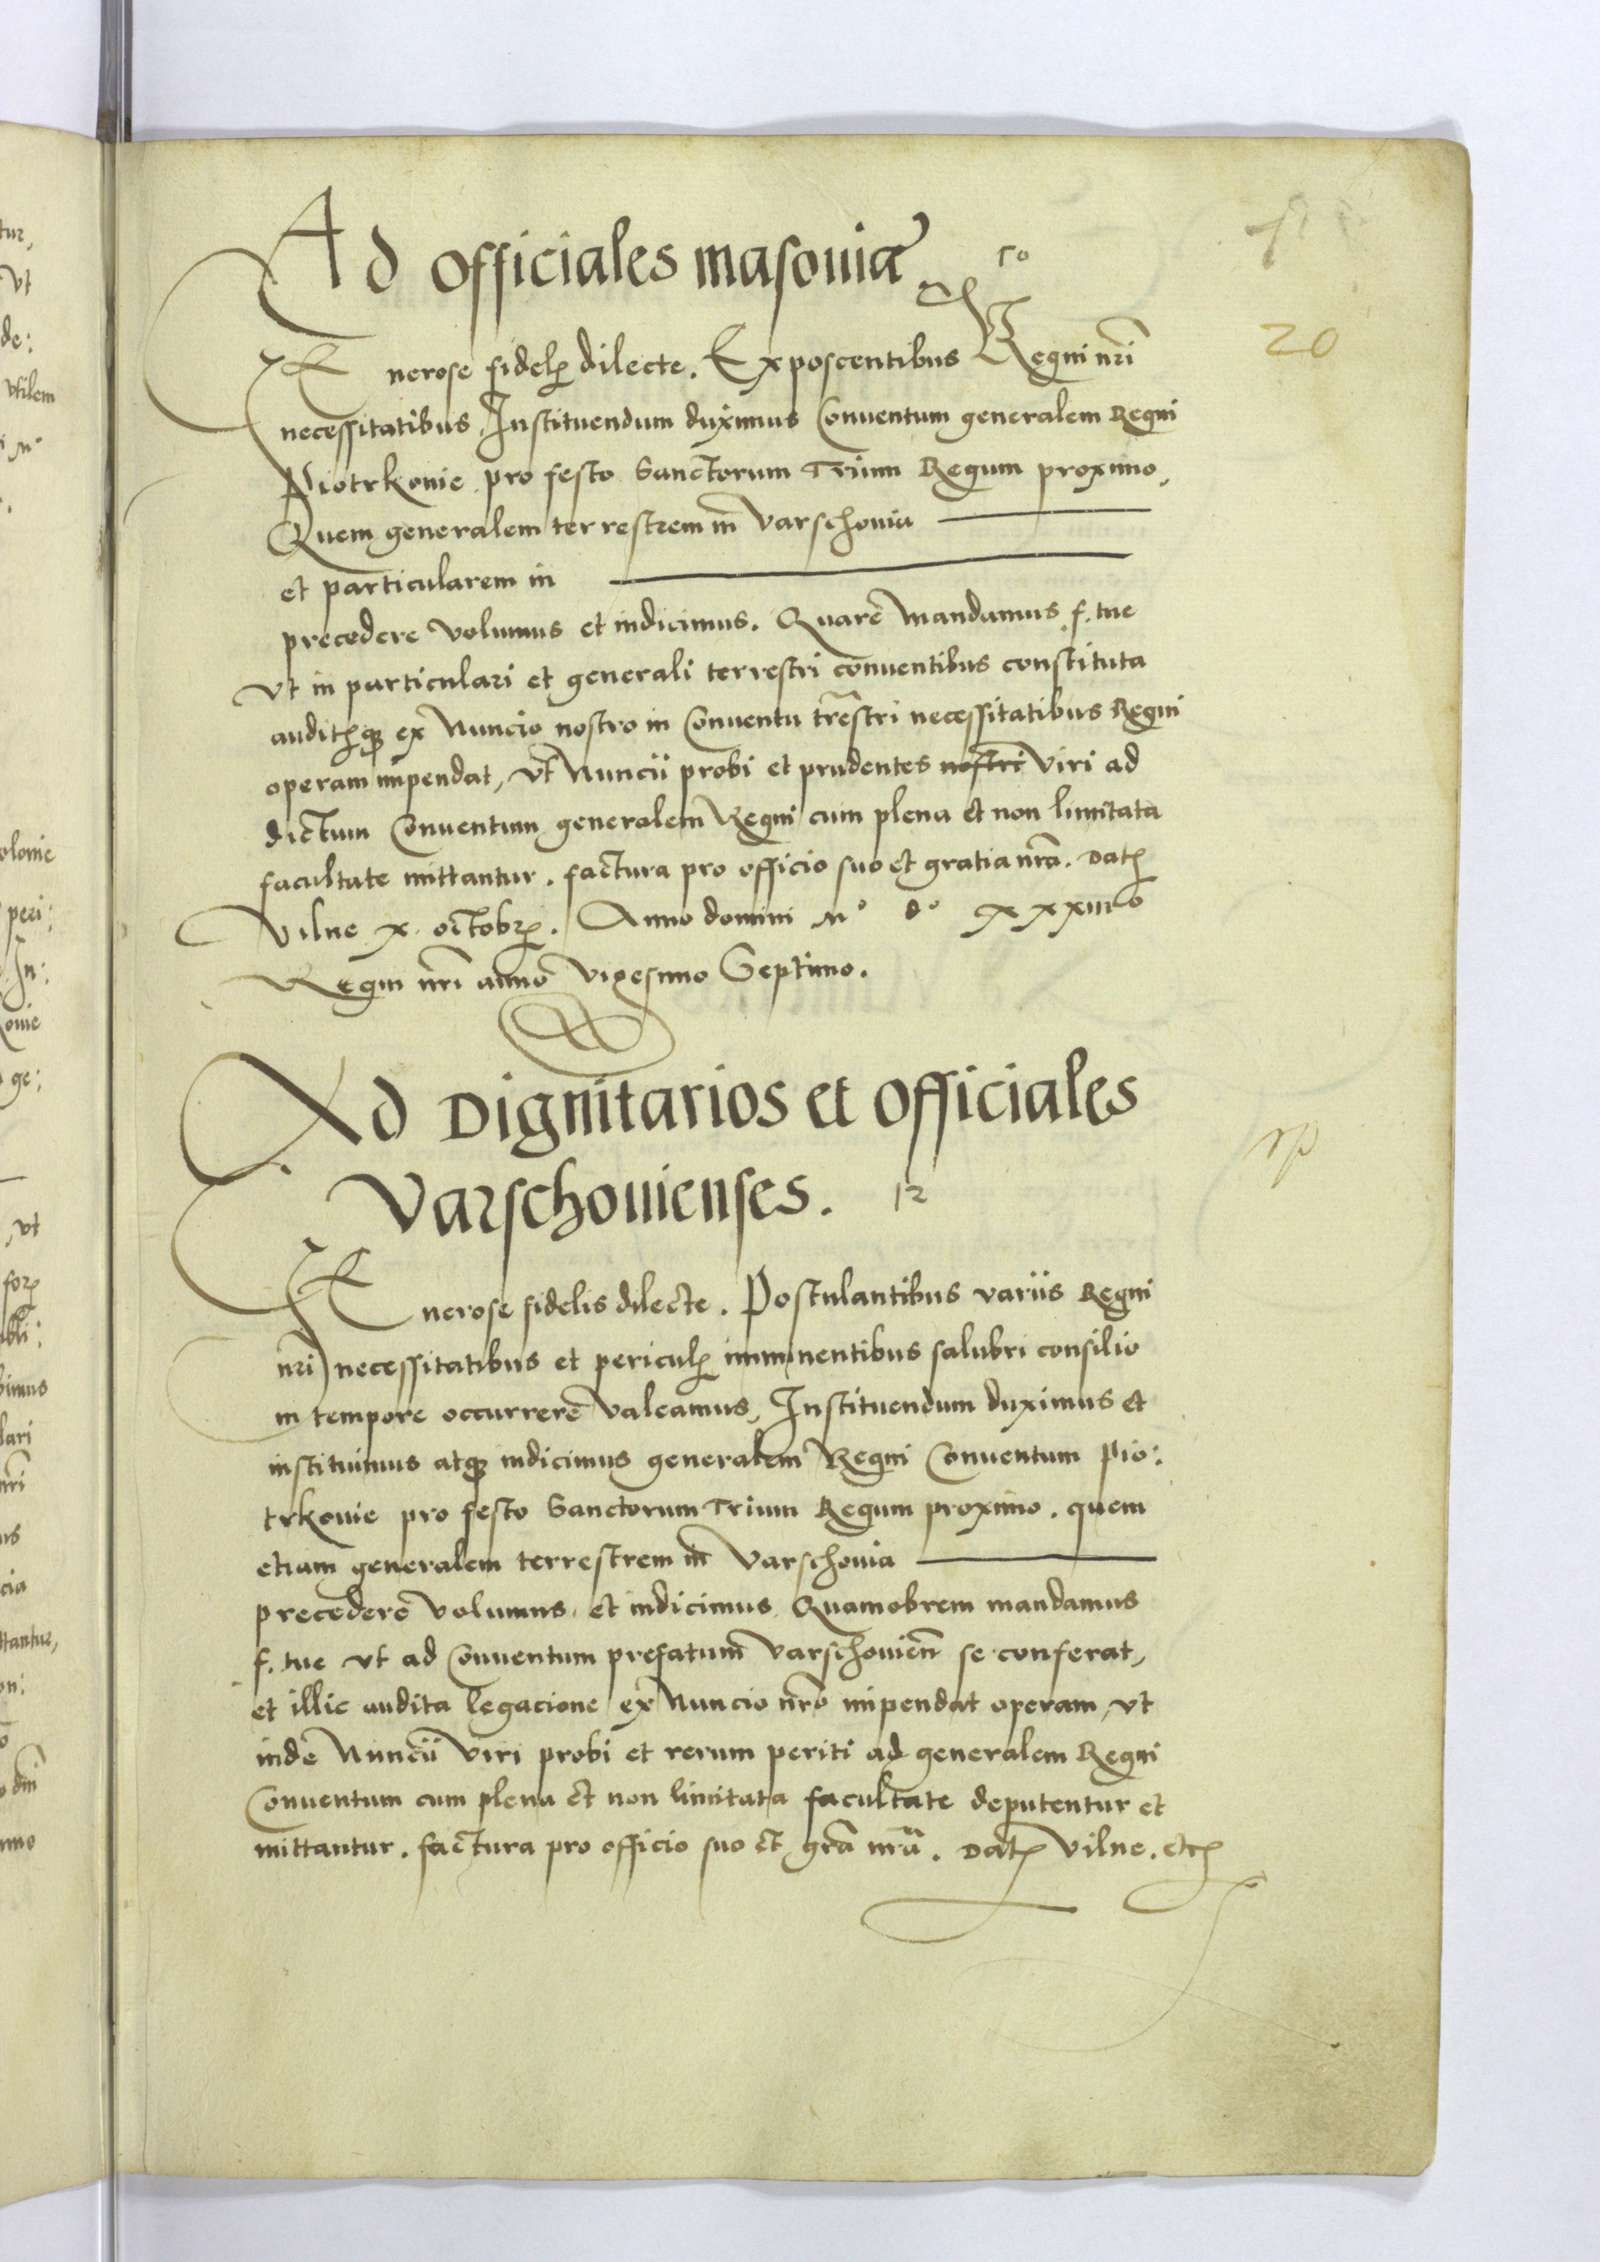 Ad officiales masouiae. 10
20
Generose fidelꝭ dilecte. Exposcentibus Regni nr̄i
necessitatibus, Instituendum duximus Conuentum generalem Regni
Piotrkouie pro festo Sanctorum Trium Regum proximo,
Quem generalem terrestrem in Varschouia
et particularem in
precedere volumus et indicimus. Quare mandamus f. tue
vt in particulari et generali terrestri conuentibus constituta
auditisqꝫ ex Nuncio nostro in Conuentu tr̄estri necessitatibus Regni
operam impendat, vt Nuncii probi et prudentes nostri viri ad
dictum Conuentum generalem Regni cum plena et non limitata
facultate mittantur. factura pro officio suo et gratia nr̄a. Datꝭ
Vilne x octobrꝭ. Anno domini Mº dº xxxiiiº
Regni nr̄i anno vigesimo Septimo.
Ad Dignitarios et officiales
Varschouienses. 12
Generose fidelis dilecte. Postulantibus variis Regni
nr̄i necessitatibus et periculꝭ imminentibus salubri consilio
in tempore occurrere valeamus, Instituendum duximus et
instituimus atqꝫ indicimus generalem Regni Conuentum Pio:
trkouie pro festo Sanctorum Trium Regum proximo. quem
etiam generalem terrestrem in Varschouia
precedere volumus et indicimus Quamobrem mandamus
f. tue vt ad Conuentum prefatum Varschouien̄ se conferat,
et illic audita legacione ex Nuncio nr̄o impendat operam, vt
inde Nuncii viri probi et rerum periti ad generalem Regni
Conuentum cum plena et non limitata facultate deputentur et
mittantur. factura pro officio suo et gr̄a nr̄a. Datꝭ Vilne. etcꝭ